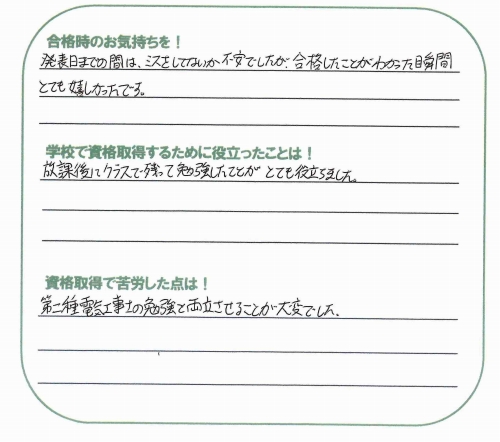 合格時のお気持ちを！
発表日までの間は、ミスをしてないか不安でしたが、合格したことがわかった瞬間
とても嬉しかったです。
学校で資格取得するために役立ったことは！
放課後にクラスで残って勉強したことがとても役立ちました。
資格取得で苦労した点は！
第二種電気工事士の勉強と両立させることが大変でした。